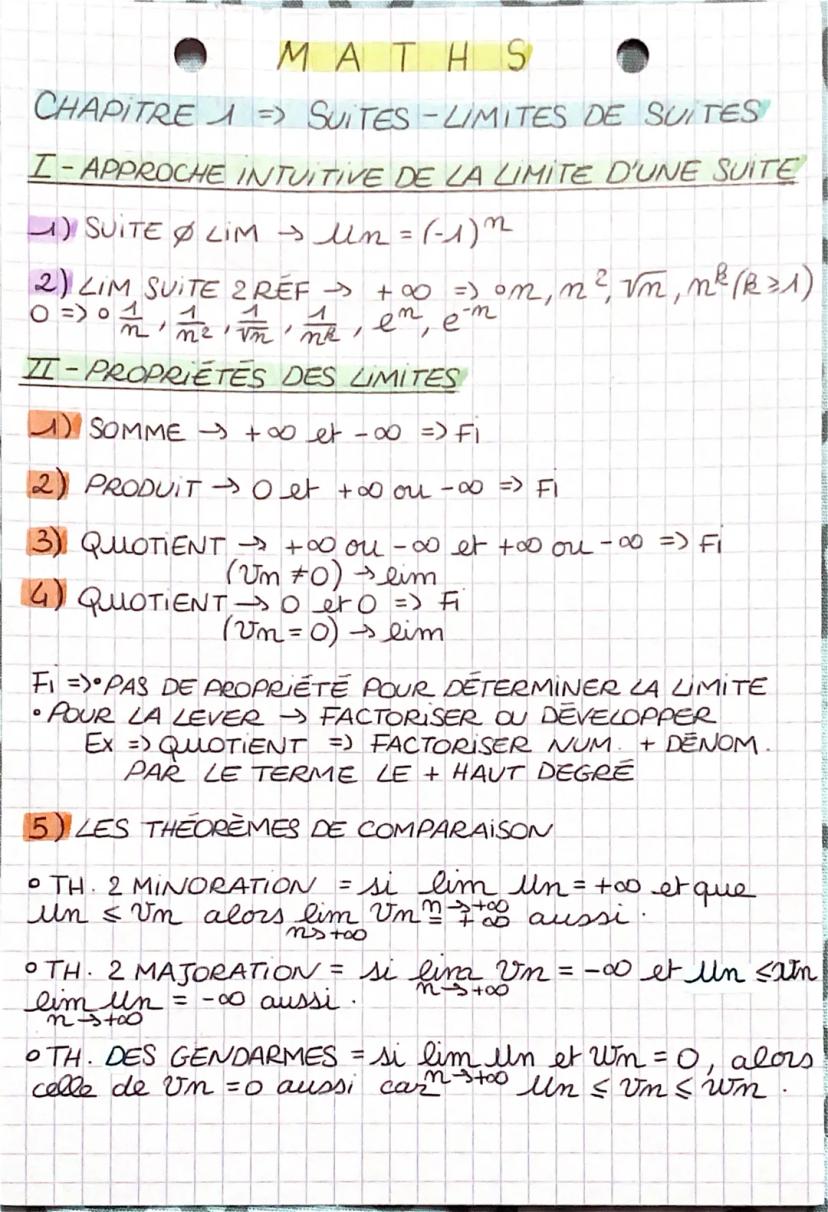 MATHS
CHAPITRE 1 => SUITES - LIMITES DE SUITES
I - APPROCHE INTUITIVE DE LA LIMITE D'UNE SUITE
1) SUITE ∅ LIM → Un = (-1)^n
2) LIM SUITE 2 RÉF → +∞ => ∘ n, n², √n, n^k (k ≥ 1)
0 => ∘ 1/n, 1/n², 1/√n, 1/n^k, e^n, e^-n
II - PROPRIÉTÉS DES LIMITES
1) SOMME → +∞ et -∞ => Fi
2) PRODUIT → 0 et +∞ ou -∞ => Fi
3) QUOTIENT → +∞ ou -∞ et +∞ ou -∞ => Fi
(Vn ≠ 0) → lim
4) QUOTIENT → 0 et 0 => Fi
(Vn = 0) → lim
Fi => • PAS DE PROPRIÉTÉ POUR DÉTERMINER LA LIMITE
• POUR LA LEVER → FACTORISER OU DÉVELOPPER
Ex => QUOTIENT => FACTORISER NUM. + DÉNOM.
PAR LE TERME LE + HAUT DEGRÉ
5) LES THÉORÈMES DE COMPARAISON
∘ TH. 2 MINORATION = si lim Un = +∞ et que
n→+∞
Un ≤ Vn alors lim Vn = +∞ aussi.
n→+∞
∘ TH. 2 MAJORATION = si lim Vn = -∞ et Un ≤ Vn
n→+∞
lim Un = -∞ aussi.
n→+∞
∘ TH. DES GENDARMES = si lim Un et Wn = 0, alors
n→+∞
celle de Vn = 0 aussi car Un ≤ Vn ≤ Wn.